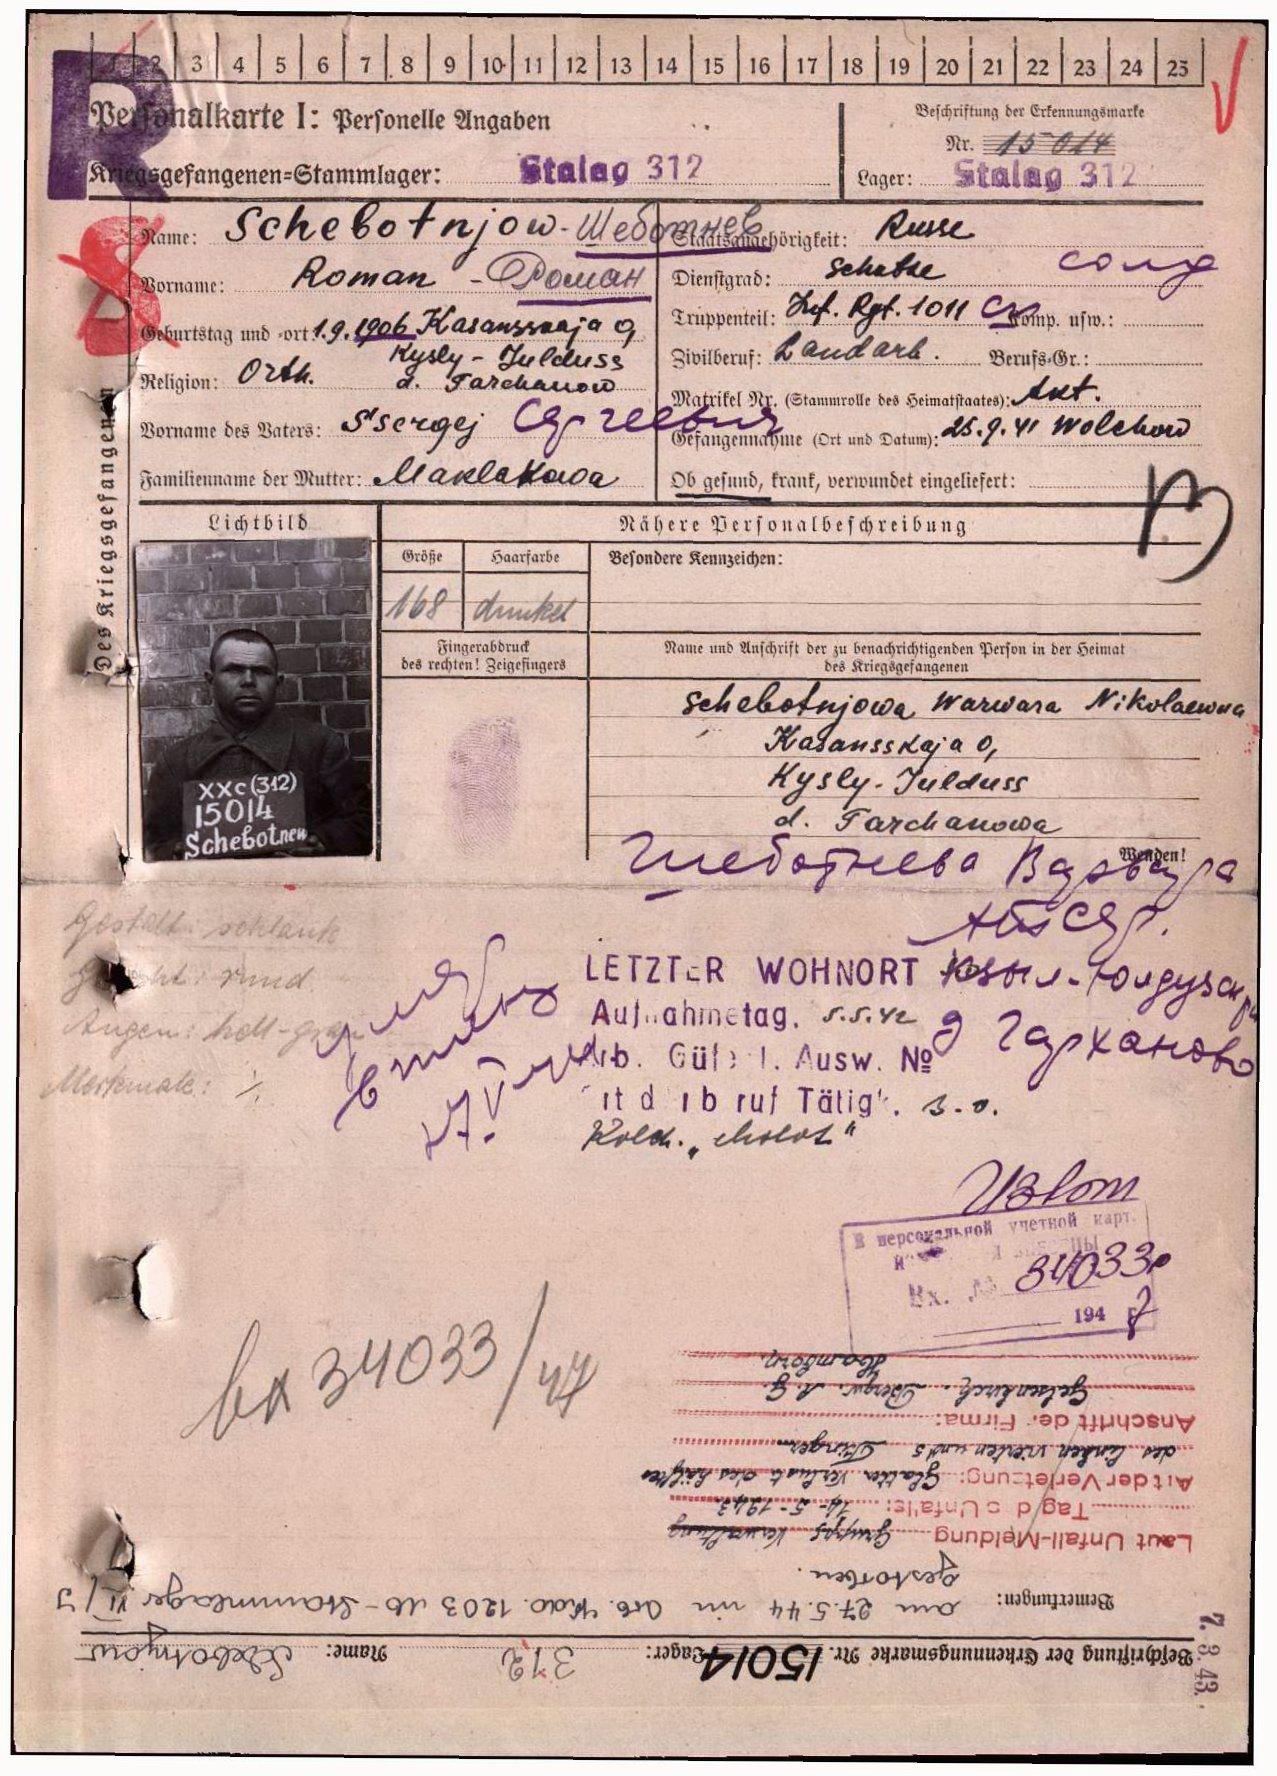 1 2 3 4 5 6 7 8 9 10 11 12 13 14 15 16 17 18 19 20 21 22 23 24 25
R
Personalkarte I: Personelle Angaben
Kriegsgefangenen=Stammlager: Stalag 312
Beschriftung der Erkennungsmarke
Nr. 15014
Lager: Stalag 312
Des Kriegsgefangenen
Name: Schebotnjow - Шеботнев
Vorname: Roman - Роман
Geburtstag und -ort: 1.9.1906 Kasansskaja O,
Kysly-Julduss
Religion: Orth. d. Tarchanow
Vorname des Vaters: Ssergej Сергеевич
Familienname der Mutter: Maklakowa
Staatsangehörigkeit: Russe
Dienstgrad: Schutse солд
Truppenteil: Inf. Rgt. 1011 Komp. usw.:
Zivilberuf: Landarb. Berufs-Gr.:
Matrikel Nr. (Stammrolle des Heimatstaates): Akt.
Gefangennahme (Ort und Datum): 25.9.41 Wolchow
Ob gesund, krank, verwundet eingeliefert:
Lichtbild
Nähere Personalbeschreibung
Größe Haarfarbe Besondere Kennzeichen:
168 dunkel
Fingerabdruck
des rechten! Zeigefingers
Name und Anschrift der zu benachrichtigenden Person in der Heimat
des Kriegsgefangenen
Schebotnjowa Warwara Nikolaewna
Kasansskaja O,
Kysly-Julduss
d. Tarchanowa
XXc(312)
15014
Schebotnew
Wenden!
Шеботнева Варвара
Gestalt: schlank
Gesicht: rund
Augen: hell-grau
Merkmale: ./.
LETZTER WOHNORT Кзыл-Юлдузский р-н
Aufnahmetag. 5.5.42 д Тарханово
Arb. Güte l. Ausw. №
it d rb ruf Tätigk. s. o.
Kolch. „Molot“
В персональной учетной карт.
Вх. № 34033р
194 7 г
вх 34033/47
Beschriftung der Erkennungsmarke Nr. 15014 Lager: 312 Name: Schebotnjow
Bemerkungen: am 27.5.44 im Arb. Kdo. 1203 db - Stammlager VI/J
gestorben.
Laut Unfall-Meldung Grupps Verwaltung
Tag des Unfalls: 14-5-1943
Art der Verletzung: Glatter Verlust des hälftes
des linken vierten und 5 Finger
Anschrift der Firma:
Gelsenkirch. Bergw. A. G.
Hamborn.
7.8.43.